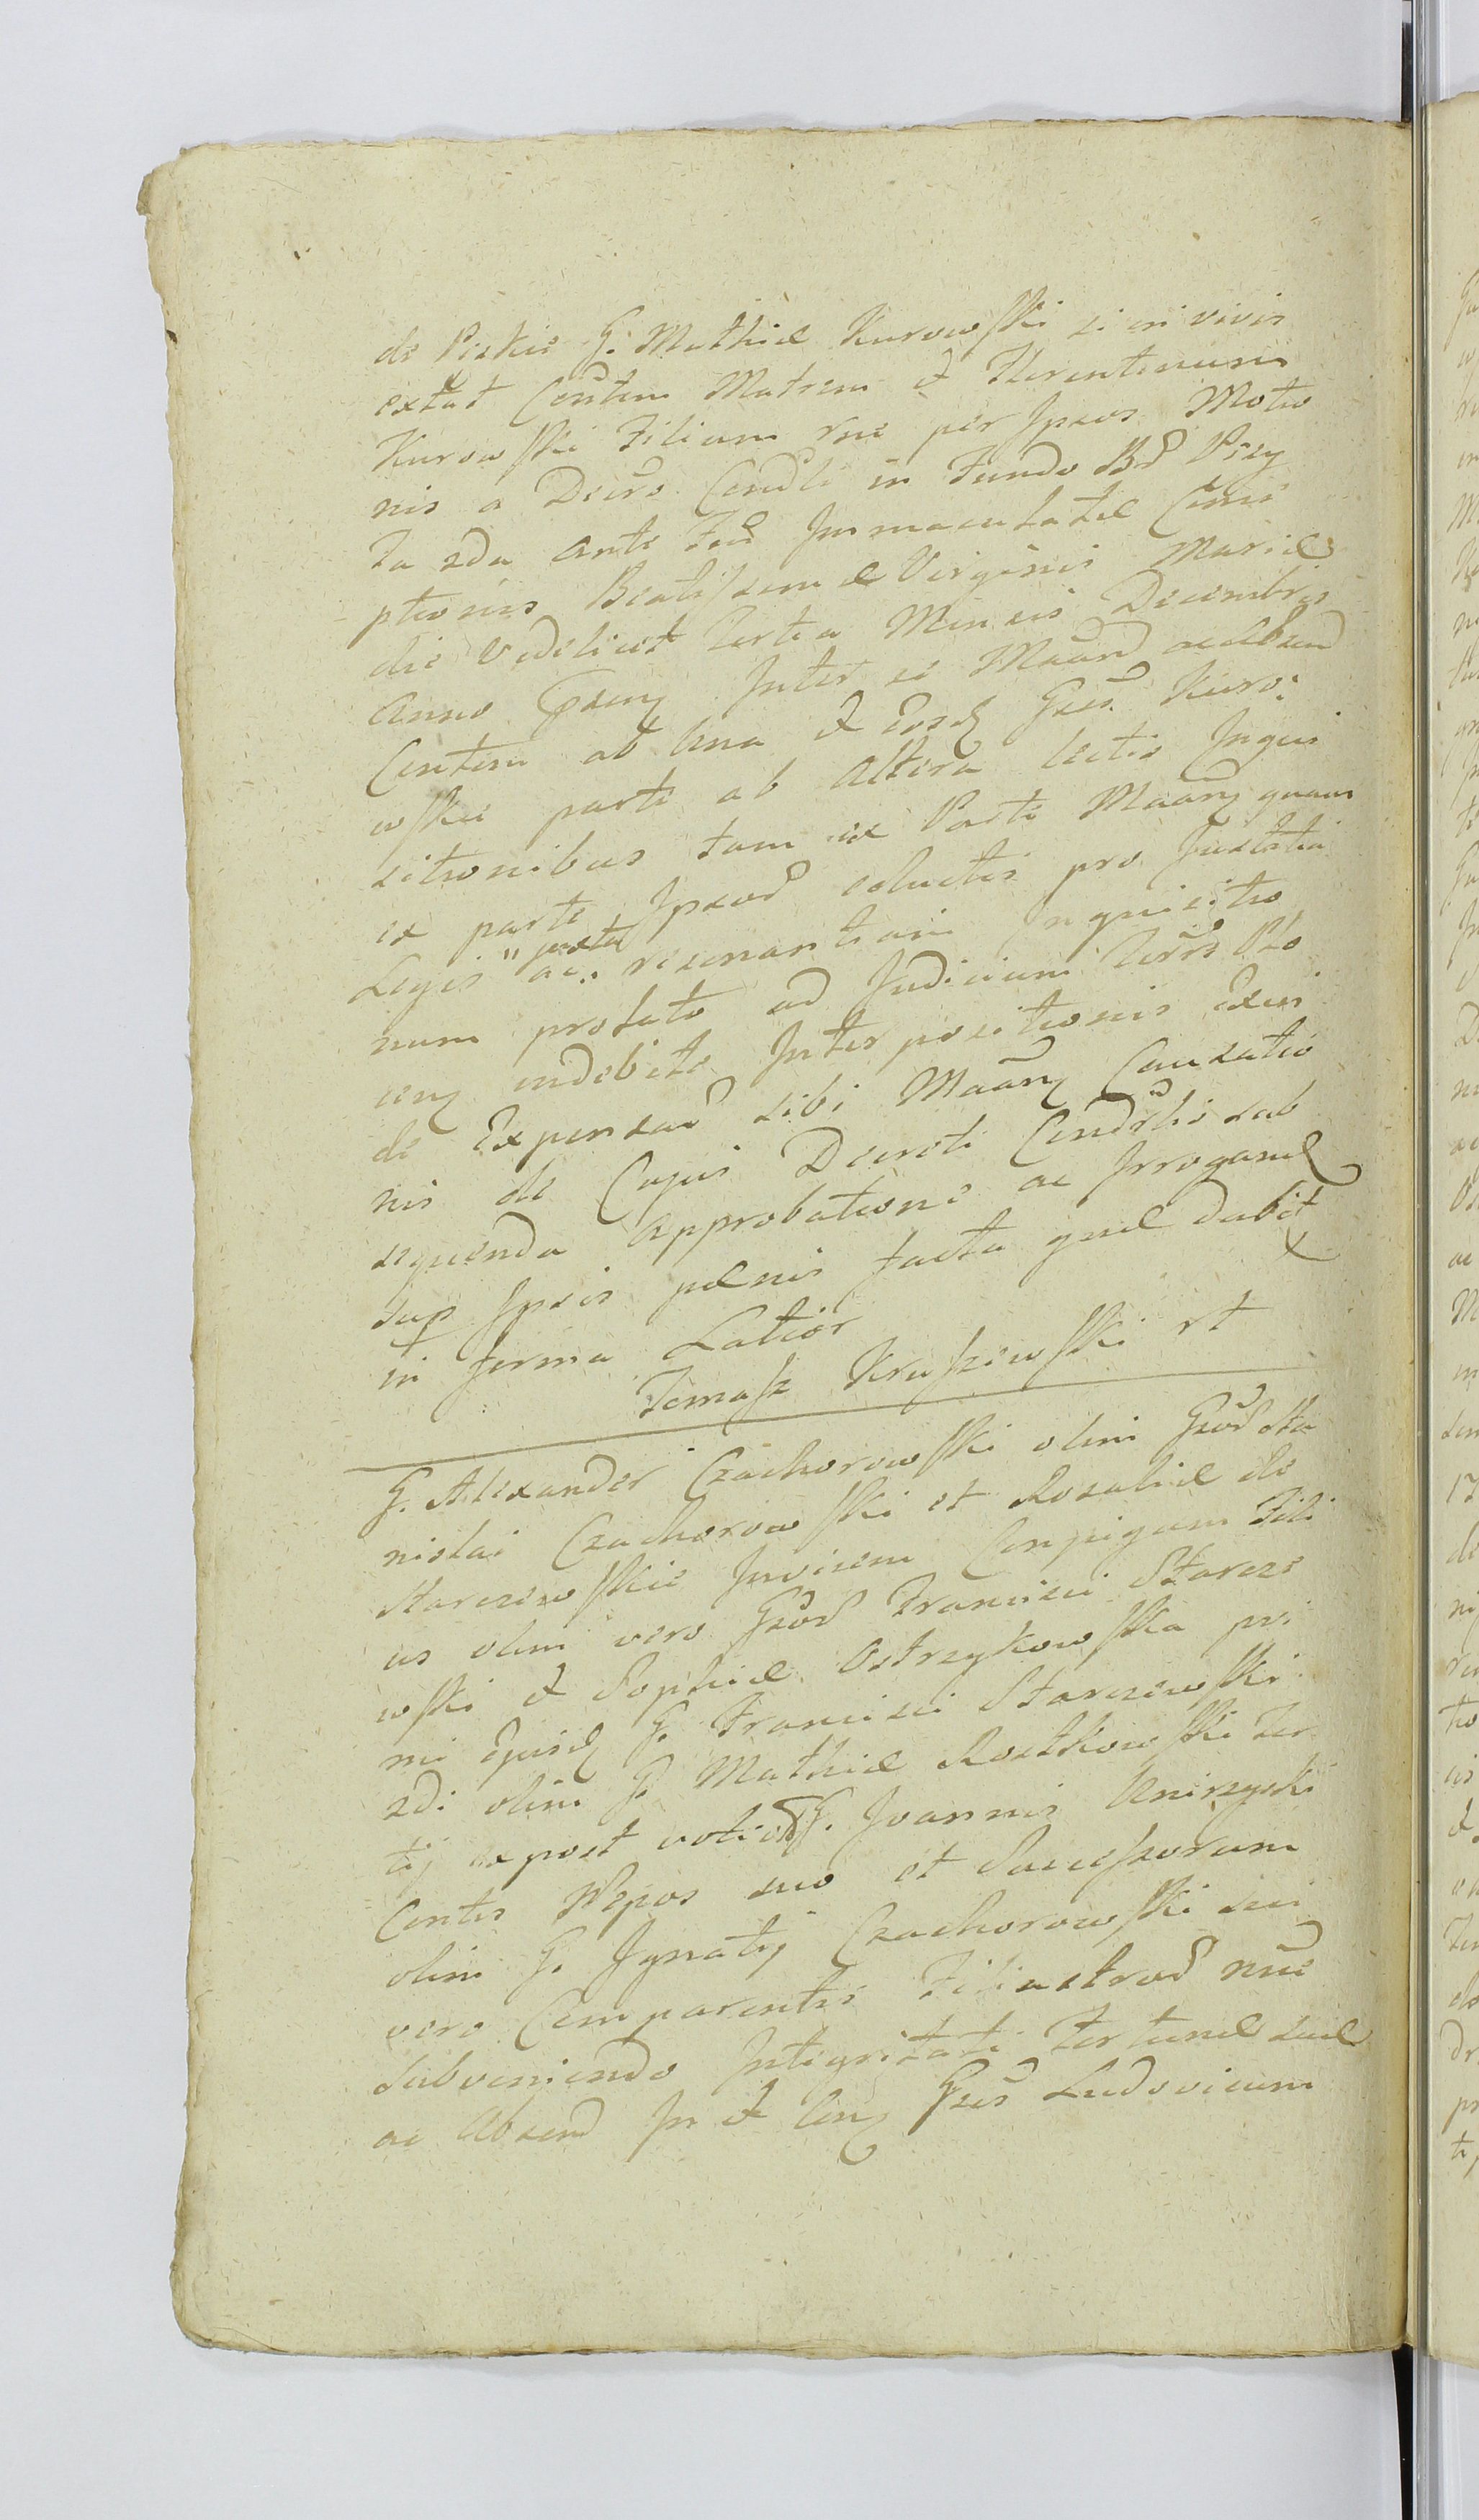 de Piskie G. Mathiæ Kurowski si in vivis
extat Contem Matrem et Florentinum
Kurowski Filium rne per Ipsos Motio
nis a Decro Cond̃li in Fundo Bõr Przy
ta 2da Ante Fes̃ Immaculatæ Conce
ptionis Beatissimæ Virginis Mariæ
die Videlicet Tertia Mensis Decembris
Anno Præsenq Inter se Maand ac Absend
Contem ab Una et Eosdq Gses Kuro:
wskie parte ab Altera lectis Inqui
sitionibus tam ex Parte Maanq quam
ex parte Ipsoõ eductis pro Justitia
Legis " ac.. juxta resenantiam Inquisitio
num prolato ad Judicium Terrs Plo
cenq indebite Interpositionis Exin
de Expensaõ sibi Maanq Causatio
nis de Cujus Decreti Condrlis sub
sequenda Approbatione ac Irrogand
sup Ipsis pænis facta quæ dabit
in forma Latior
Tomasz Kruszewski rt
G. Alexander Czachorowski olim Gsoõ Sta
nislai Czachorowski et Rosaliæ de
Starczewskie Invicem Conjugum Fili
us olim vero Gsoõ Francisci Starcze
wski et Sophiæ Ostrzykowska pri
mi Ejusdq G. Francisci Starczewski
2di olim G. Mathiæ Rostkowski Ter
tij expost voti G. Joannis Unirzyski
Contis Nepos suo et Sucessorum
olim G. Ignatij Czachorowski sui
vero Comparentis Filiastroõ nõe
subveniendo Integritati Fortunæ suæ
ac Absend In et Conq Gses Ludovicum